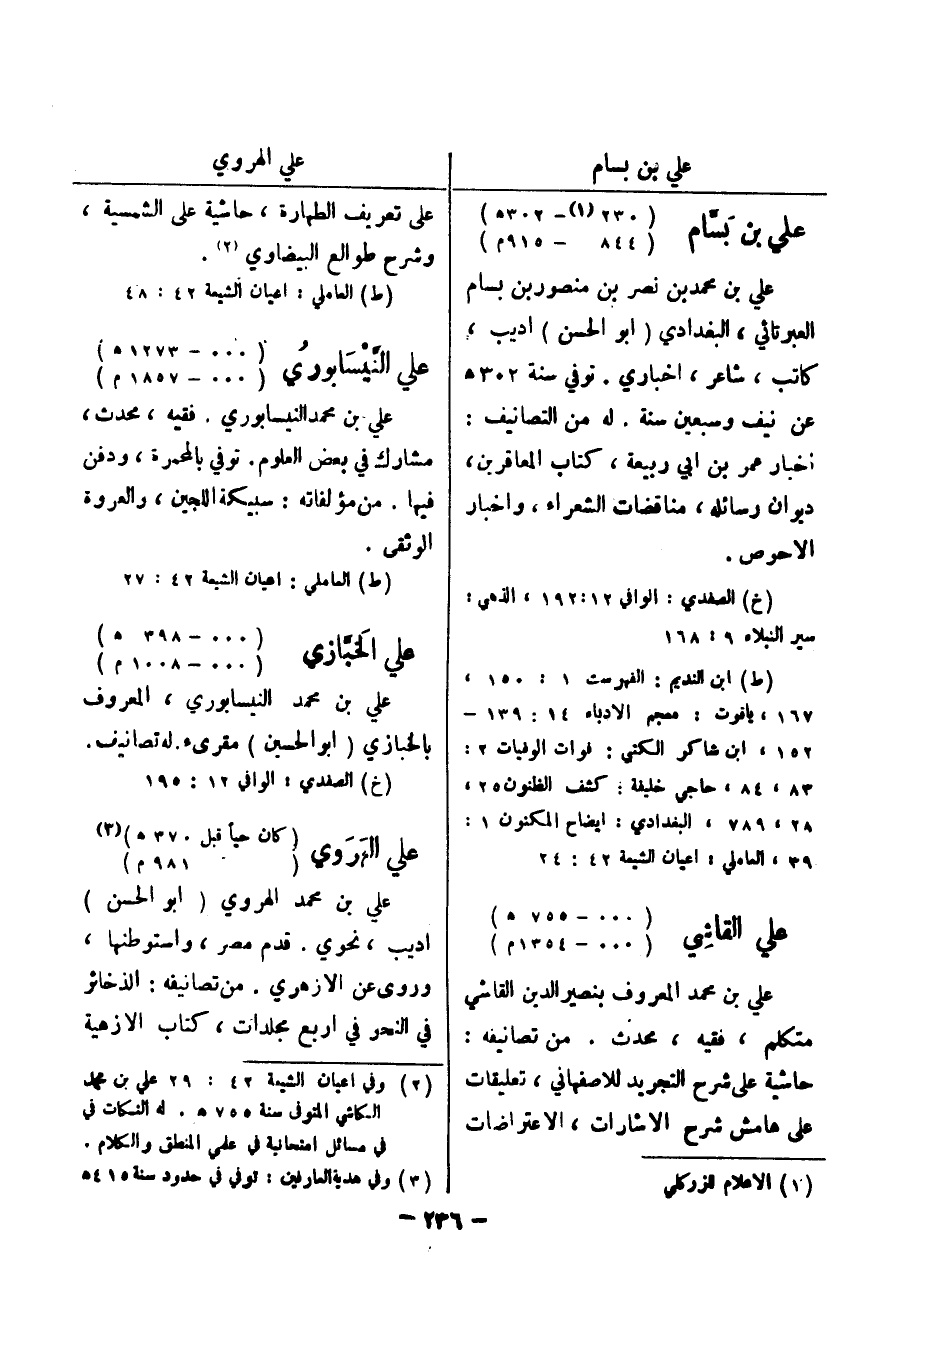 علي بن بسام
علي بن بَسَّام
( ٢٣٠ (١) – ٣٠٢ ه )
( ٨٤٤ – ٩١٥ م )
علي بن محمد بن نصر بن منصور بن بسام
العبرتائي ، البغدادي ( ابو الحسن ) اديب ،
كاتب ، شاعر ، اخباري . توفي سنة ٣٠٢ ه
عن نيف وسبعين سنة . له من التصانيف :
أخبار عمر بن ابي ربيعة ، كتاب المعاقرين،
ديوان رسائله ، مناقضات الشعراء ، واخبار
الاحوص .
(خ) الصفدي : الوافي ١٢ : ١٩٢ ، الذهبي :
سير النبلاء ٩ : ١٦٨
(ط) ابن النديم : الفهرست ١ : ١٥٠ ،
١٦٧ ، ياقوت : معجم الادباء ١٤ : ١٣٩ –
١٥٢ ، ابن شاكر الكتبي : فوات الوفيات ٢ :
٨٣ ، ٨٤ ، حاجي خليفة : كشف الظنون ٢٥ ،
٢٨ ، ٧٨٩ ، البغدادي : ايضاح المكنون ١ :
٣٩ ، العاملي : اعيان الشيعة ٤٢ : ٢٤
علي القاشِي
( ٠٠٠ – ٧٥٥ ه )
( ٠٠٠ – ١٣٥٤ م )
علي بن محمد المعروف بنصير الدين القاشي
متكلم ، فقيه ، محدث . من تصانيفه :
حاشية على شرح التجريد للاصفهاني ، تعليقات
على هامش شرح الاشارات ، الاعتراضات
(١) الاعلام للزركلي
علي الهروي
على تعريف الطهارة ، حاشية على الشمسية ،
وشرح طوالع البيضاوي (٢) .
(ط) العاملي : اعيان الشيعة ٤٢ : ٤٨
علي النَّيْسَابوري
( ٠٠٠ – ١٢٧٣ ه )
( ٠٠٠ – ١٨٥٧ م )
علي بن محمد النيسابوري . فقيه ، محدث ،
مشارك في بعض العلوم. توفي بالمحمرة ، ودفن
فيها . من مؤلفاته : سبيكة اللجين ، والعروة
الوثقى .
(ط) العاملي : اعيان الشيعة ٤٢ : ٢٧
علي الخَبَّازي
( ٠٠٠ – ٣٩٨ ه )
( ٠٠٠ – ١٠٠٨ م )
علي بن محمد النيسابوري ، المعروف
بالخبازي ( ابو الحسين ) مقرىء. له تصانيف.
(خ) الصفدي : الوافي ١٢ : ١٩٥
علي الهَرَوي
( كان حياً قبل ٣٧٠ ه ) (٣)
( ٩٨١ م )
علي بن محمد الهروي ( ابو الحسن )
اديب ، نحوي . قدم مصر ، واستوطنها ،
وروى عن الازهري . من تصانيفه : الذخائر
في النحو في اربع مجلدات ، كتاب الازهية
(٢) وفي اعيان الشيعة ٤٢ : ٢٩ علي بن محمد
الكاشي المتوفى سنة ٧٥٥ ه . له النكات في
في مسائل امتحانية في علمي المنطق والكلام .
(٣) وفي هدية العارفين : توفي في حدود سنة ٤١٥ ه
– ٢٣٦ –